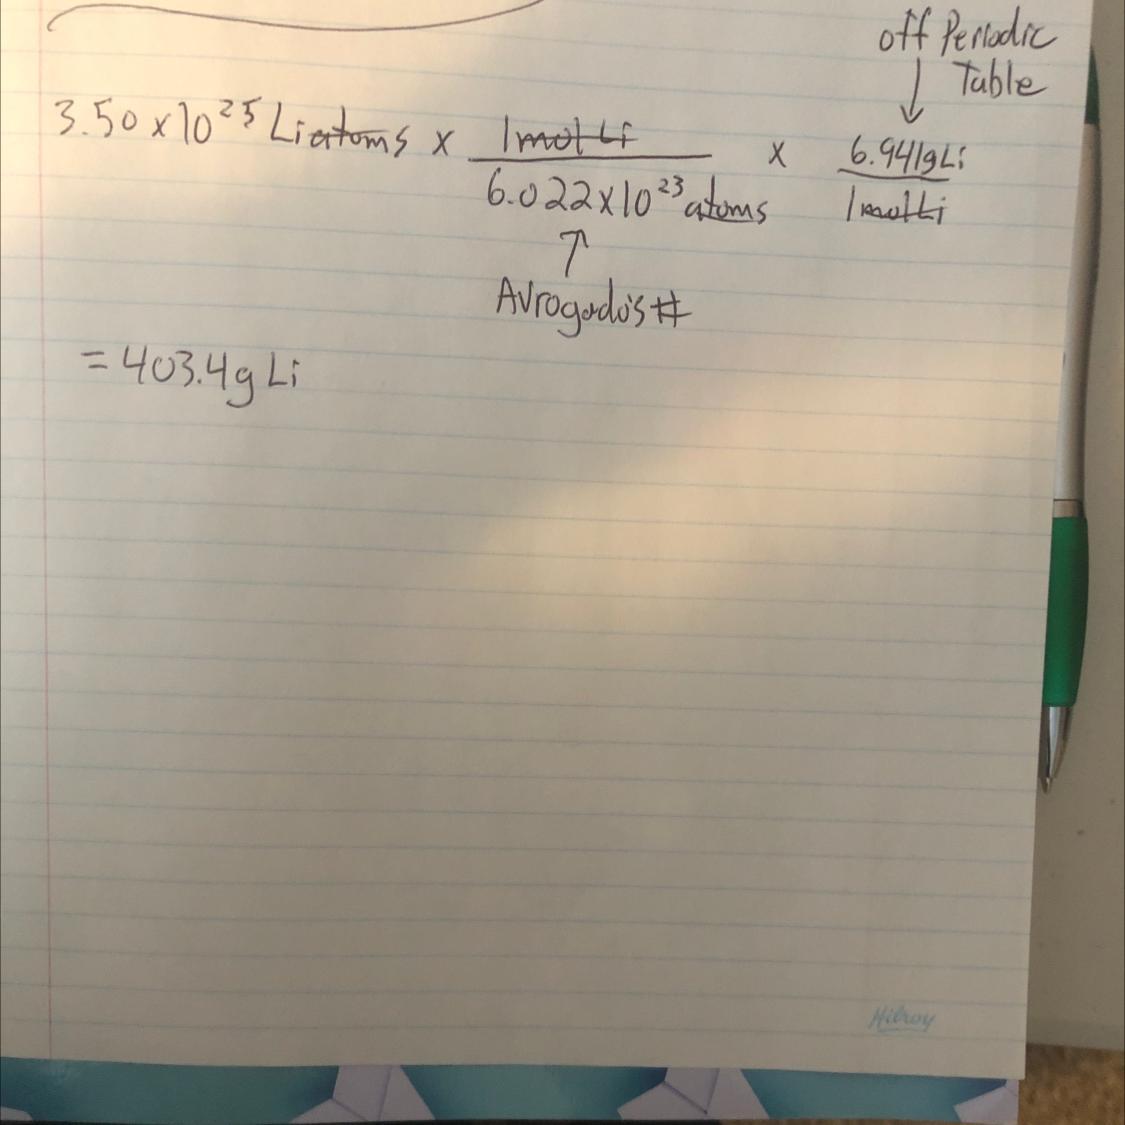 off Periodic
Table
↓
3.50 x 10²⁵ Li atoms x 1 mol Li / 6.022 x 10²³ atoms x 6.941g Li / 1 mol Li
↑
Avrogado's #
= 403.4g Li
Hilroy